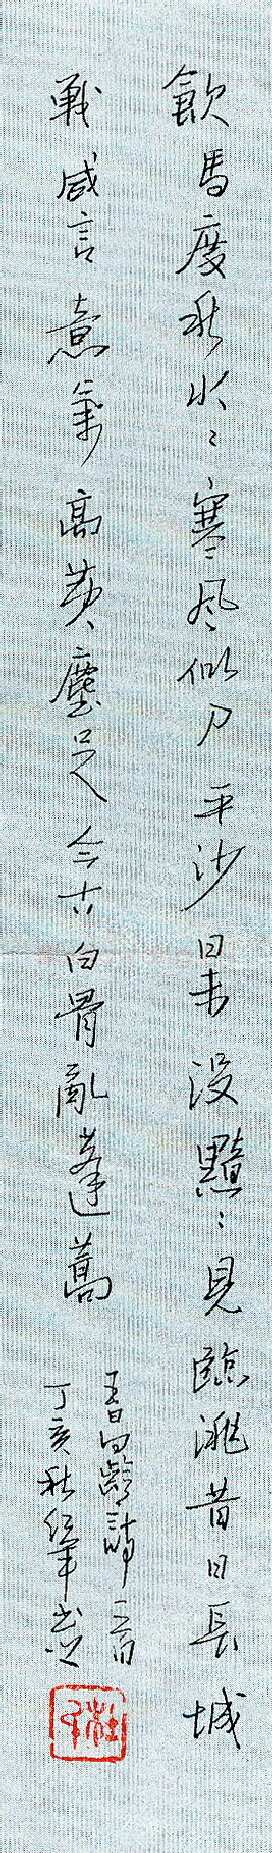 飲馬度秋水〻寒风似刀平沙日未没黯〻見臨洮昔日長城
戰咸言意氣高黄塵足今古白骨亂蓬蒿
王昌齡詩一首
丁亥秋 书